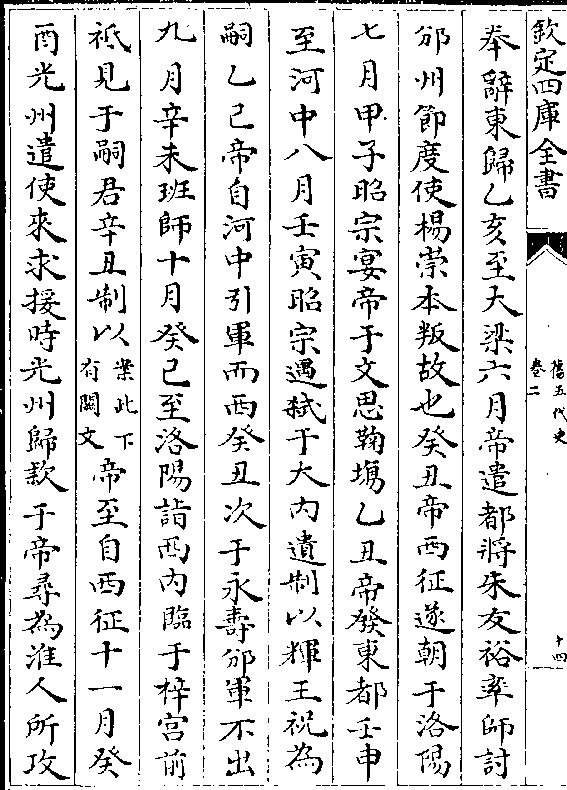 欽定四庫全書
舊五代史
卷二
十四
奉辭東歸乙亥至大梁六月帝遣都將朱友裕率師討
邠州節度使楊崇本叛故也癸丑帝西征遂朝于洛陽
七月甲子昭宗宴帝于文思鞠場乙丑帝發東都壬申
至河中八月壬寅昭宗遇弒于大内遺制以輝王祝為
嗣乙已帝自河中引軍而西癸丑次于永壽邠軍不出
九月辛未班師十月癸已至洛陽詣西内臨于梓宮前
祗見于嗣君辛丑制以案此下有闕文帝至自西征十一月癸
酉光州遣使來求援時光州歸款于帝尋為淮人所攻